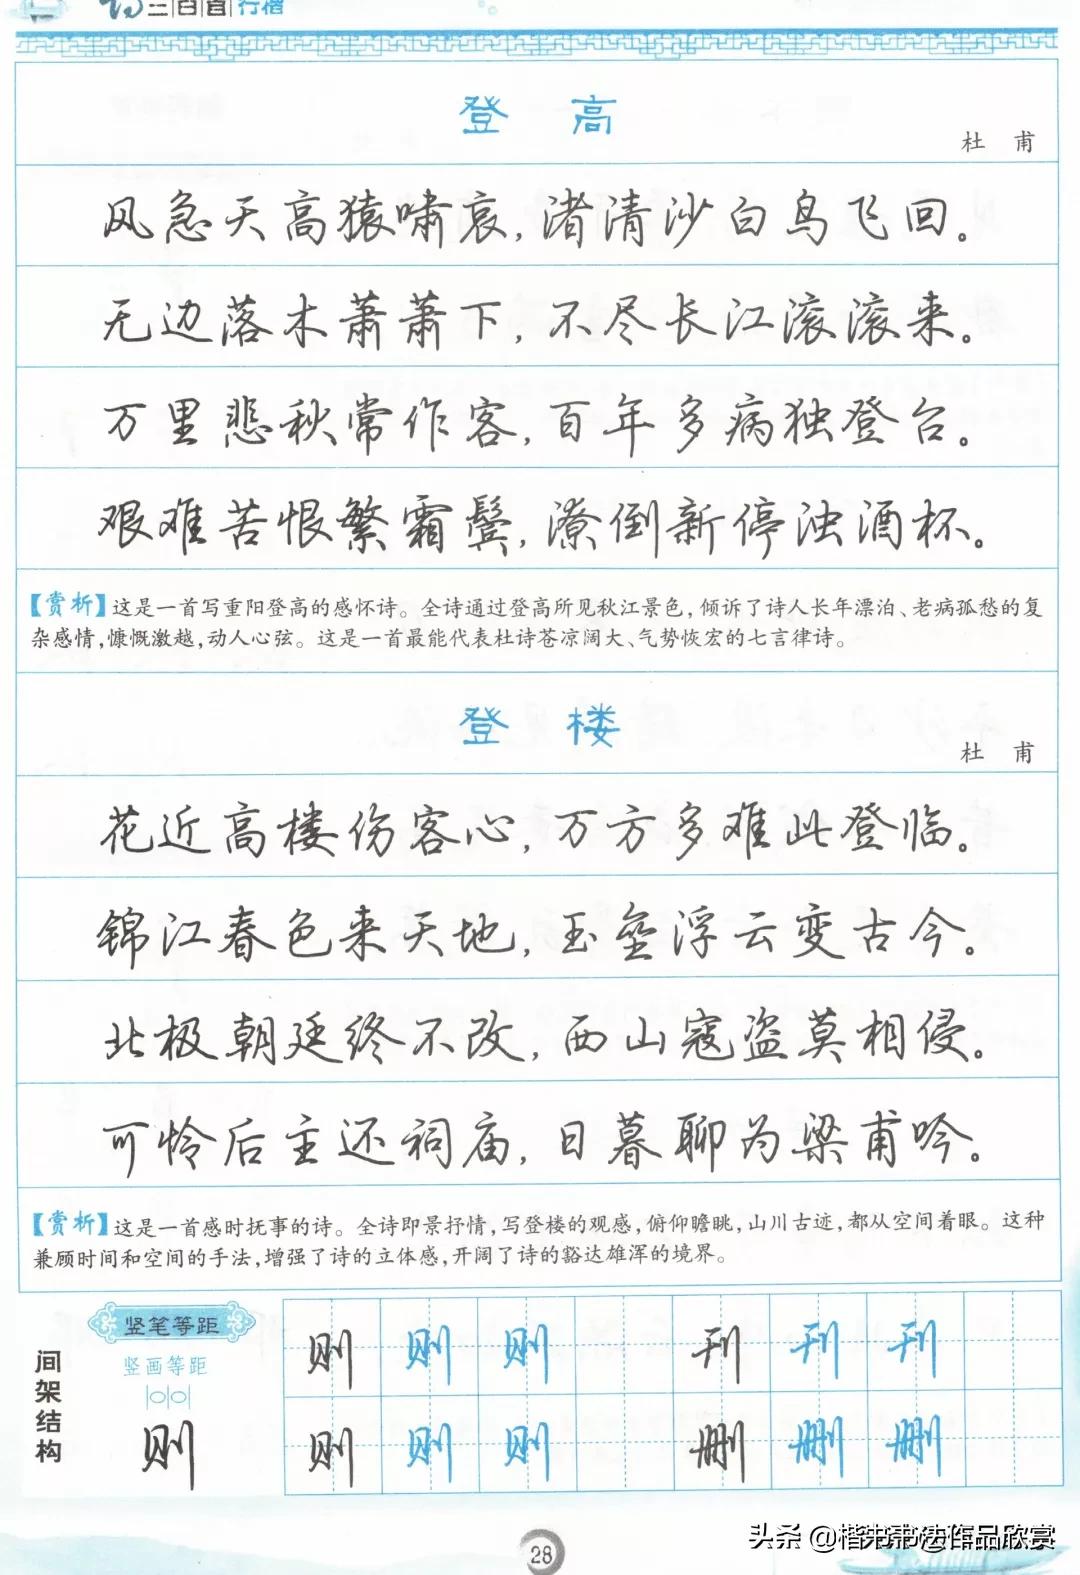 诗三百首 行楷
登高
杜甫
风急天高猿啸哀,渚清沙白鸟飞回。
无边落木萧萧下,不尽长江滚滚来。
万里悲秋常作客,百年多病独登台。
艰难苦恨繁霜鬓,潦倒新停浊酒杯。
【赏析】这是一首写重阳登高的感怀诗。全诗通过登高所见秋江景色,倾诉了诗人长年漂泊、老病孤愁的复
杂感情,慷慨激越,动人心弦。这是一首最能代表杜诗苍凉阔大、气势恢宏的七言律诗。
登楼
杜甫
花近高楼伤客心,万方多难此登临。
锦江春色来天地,玉垒浮云变古今。
北极朝廷终不改,西山寇盗莫相侵。
可怜后主还祠庙,日暮聊为梁甫吟。
【赏析】这是一首感时抚事的诗。全诗即景抒情,写登楼的观感,俯仰瞻眺,山川古迹,都从空间着眼。这种
兼顾时间和空间的手法,增强了诗的立体感,开阔了诗的豁达雄浑的境界。
间架结构
竖笔等距
竖画等距
则
则 则 则 刊 刊 刊
则 则 则 删 删 删
28
头条 @楷书书法作品欣赏